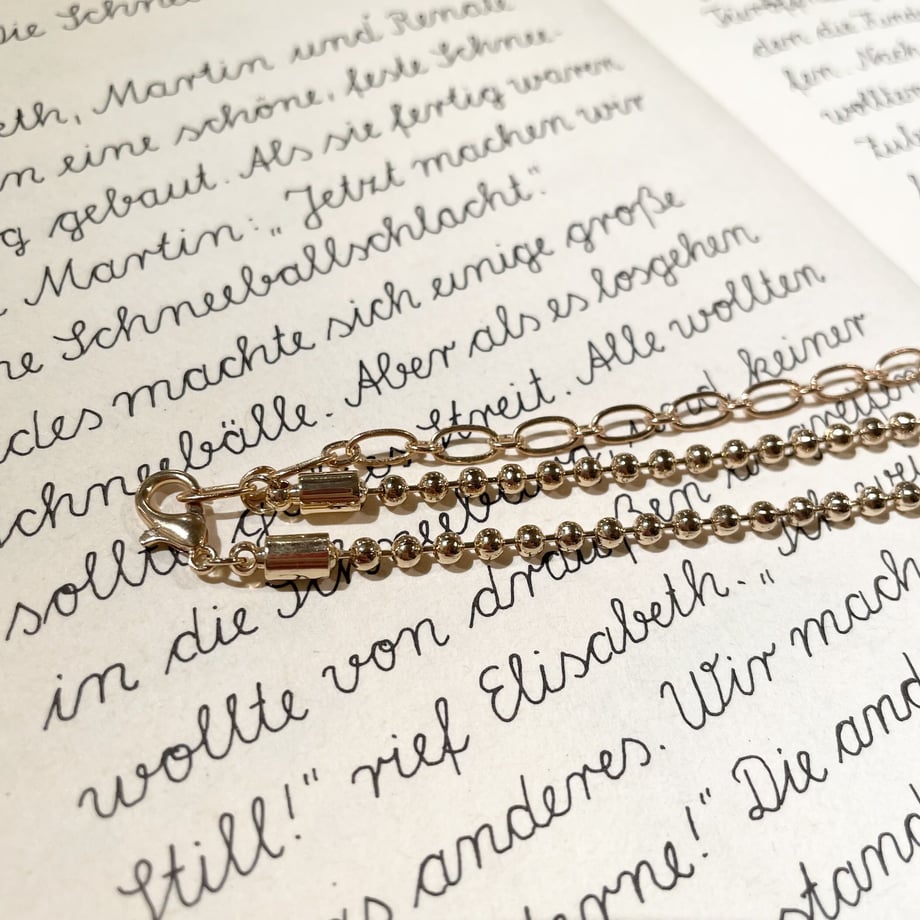 Die Schnee
eth, Martin und Renate
n eine schöne, feste Schnee-
g gebaut. Als sie fertig waren
Martin: „Jetzt machen wir
ne Schneeballschlacht".
des machte sich einige große
chneebälle. Aber als es losgehen
sollte Streit. Alle wollten
in die und keiner
wollte von draußen angreifen.
Still!" rief Elisabeth. „
as anderes. Wir mach
erne!" Die and
stand
den die
fen. Nach
wollten